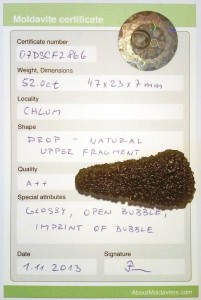 Moldavite certificate
Certificate number
07DSCF2866
Weight, Dimensions
52.0ct 47x23x7mm
Locality
CHLUM
Shape
DROP - NATURAL
UPPER FRAGMENT
Quality
A++
Special attributes
GLOSSY, OPEN BUBBLE,
IMPRINT OF BUBBLE
Date
Signature
1.11.2013
AboutMoldavites.com